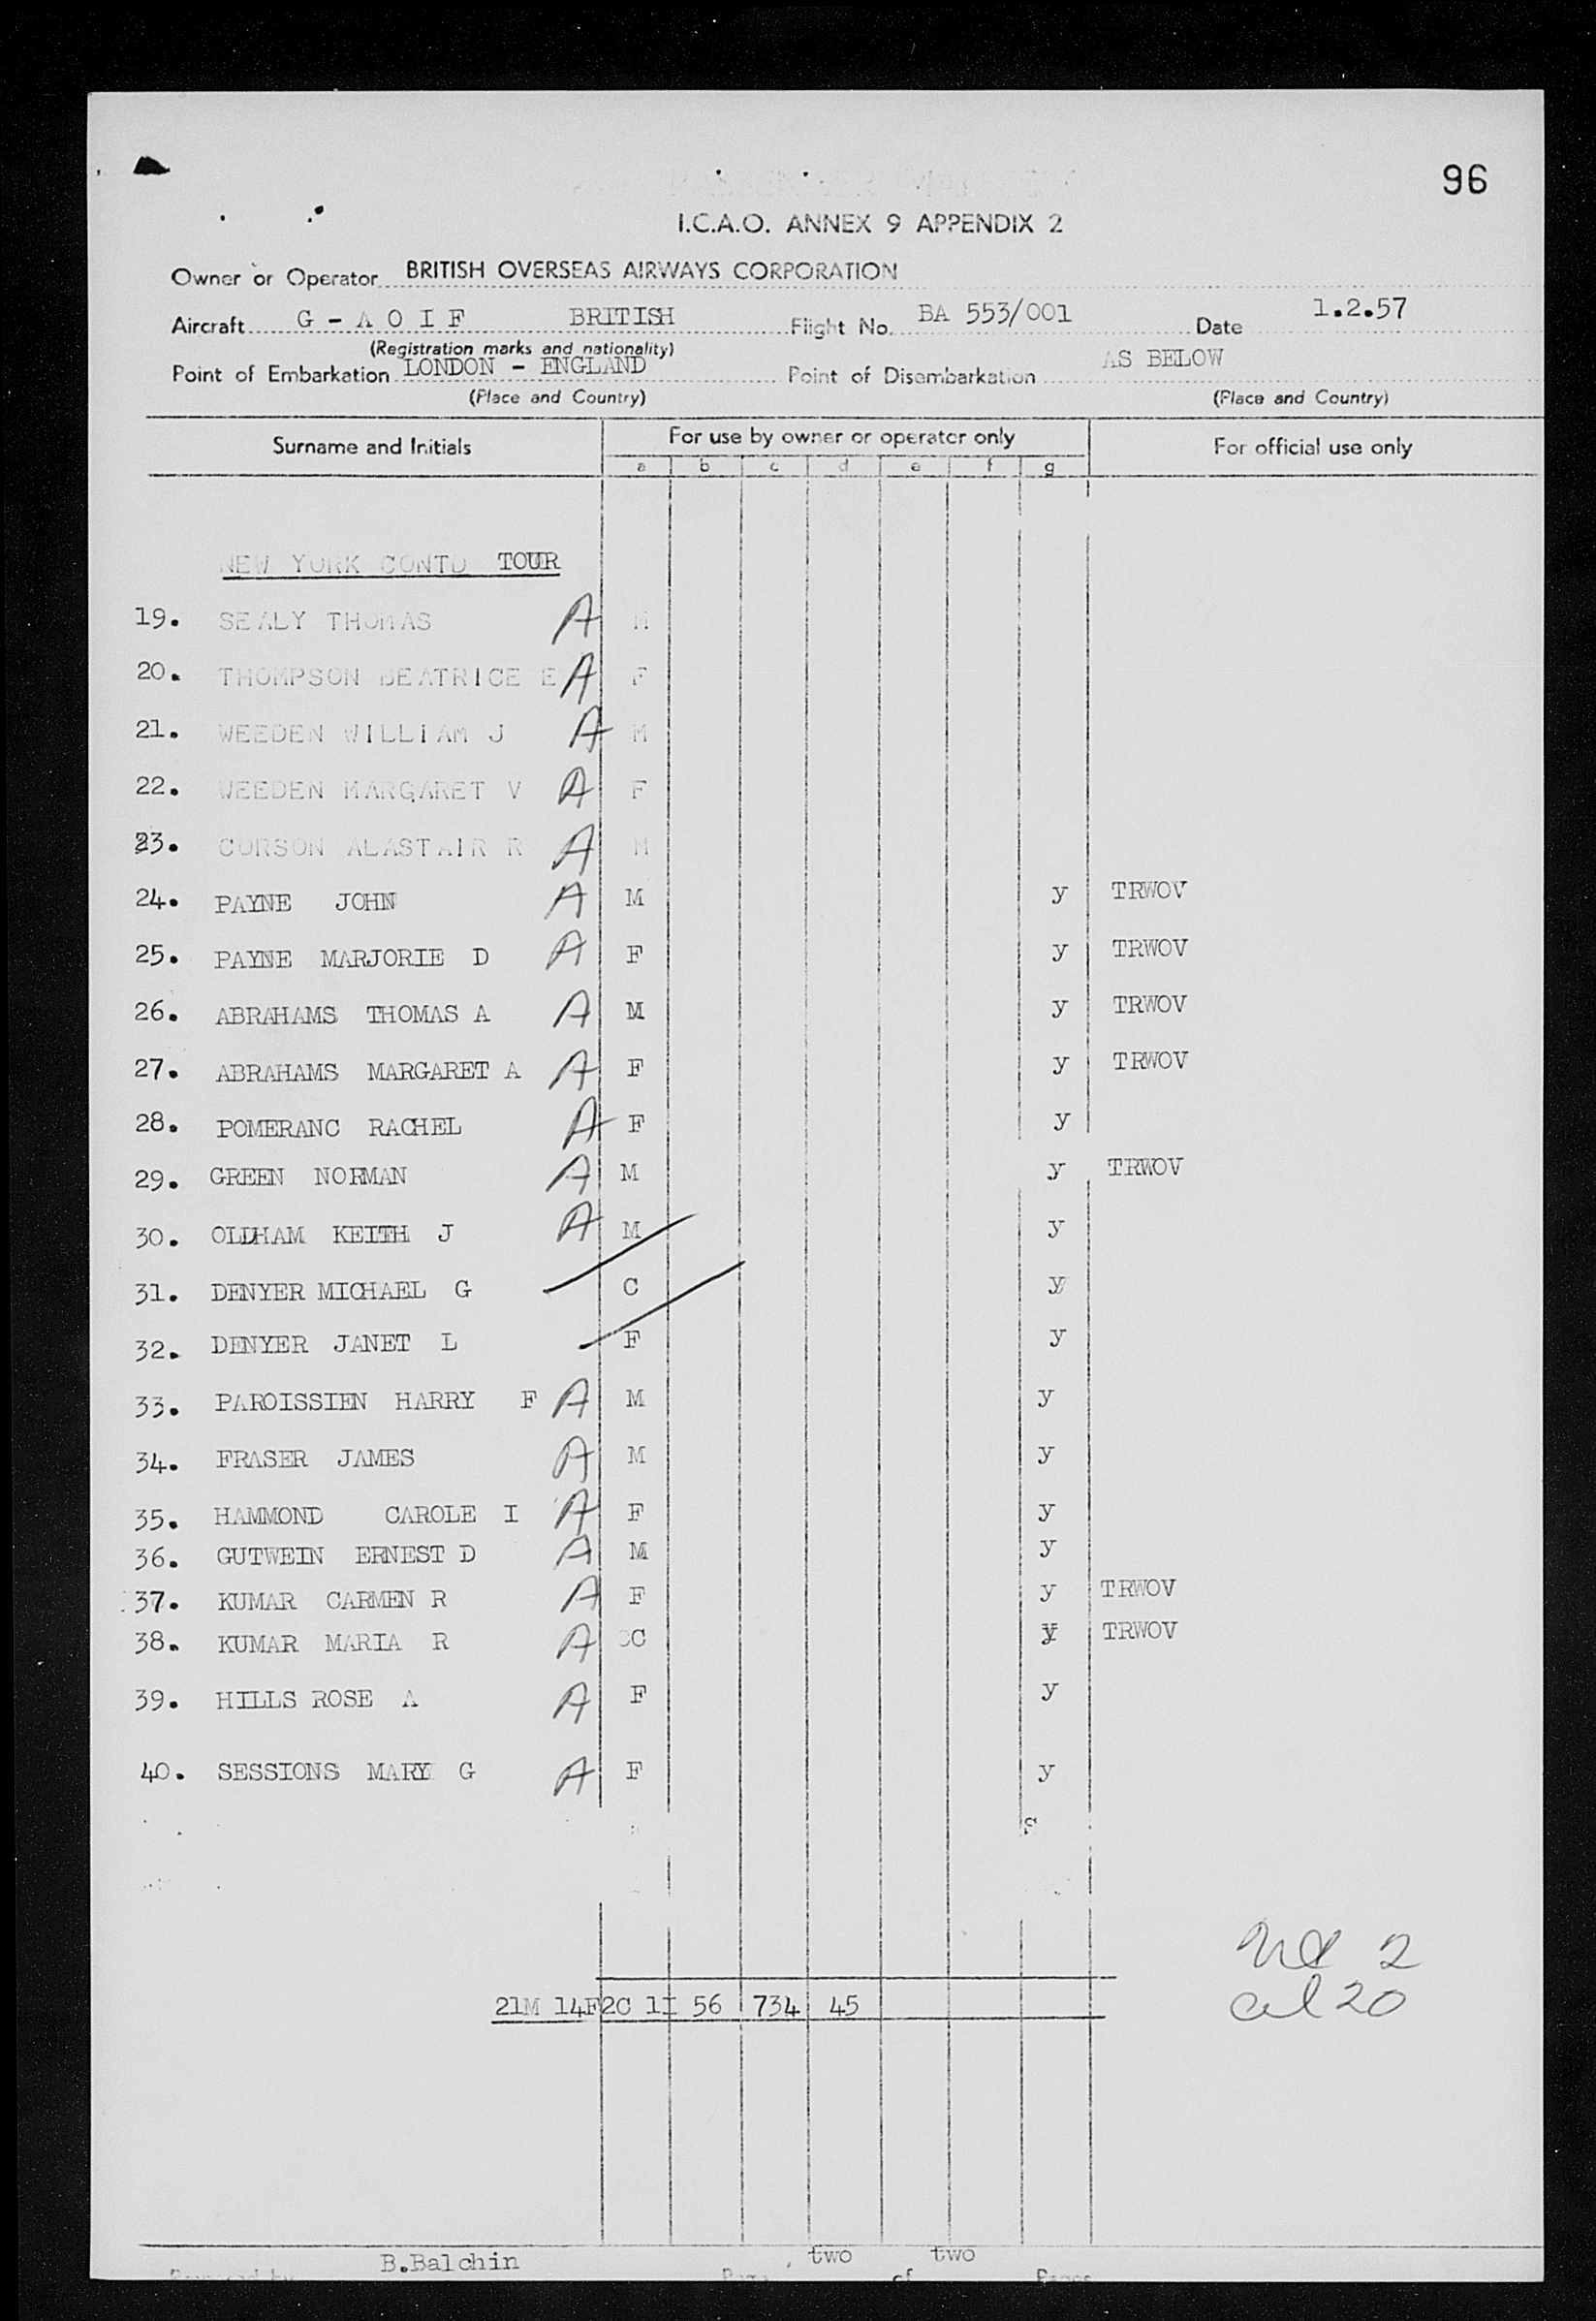 96
I.C.A.O. ANNEX 9 APPENDIX 2
Owner or Operator BRITISH OVERSEAS AIRWAYS CORPORATION
Aircraft G - A O I F BRITISH Flight No. BA 553/001 Date 1.2.57
(Registration marks and nationality)
Point of Embarkation LONDON - ENGLAND Point of Disembarkation AS BELOW
(Place and Country) (Place and Country)
Surname and Initials For use by owner or operator only For official use only
a b c d e f g
NEW YORK CONTD TOUR
19. SEALY THOMAS A M
20. THOMPSON BEATRICE E A F
21. WEEDEN WILLIAM J A M
22. WEEDEN MARGARET V A F
23. CORSON ALASTAIR R A M
24. PAYNE JOHN A M y TRWOV
25. PAYNE MARJORIE D A F y TRWOV
26. ABRAHAMS THOMAS A A M y TRWOV
27. ABRAHAMS MARGARET A A F y TRWOV
28. POMERANC RACHEL A F y
29. GREEN NORMAN A M y TRWOV
30. OLDHAM KEITH J A M y
31. DENYER MICHAEL G C y
32. DENYER JANET L F y
33. PAROISSIEN HARRY F A M y
34. FRASER JAMES A M y
35. HAMMOND CAROLE I A F y
36. GUTWEIN ERNEST D A M y
37. KUMAR CARMEN R A F y TRWOV
38. KUMAR MARIA R A C y TRWOV
39. HILLS ROSE A A F y
40. SESSIONS MARY G A F y
S
2
20
21M 14F 2C 1I 56 734 45
B.Balchin two two